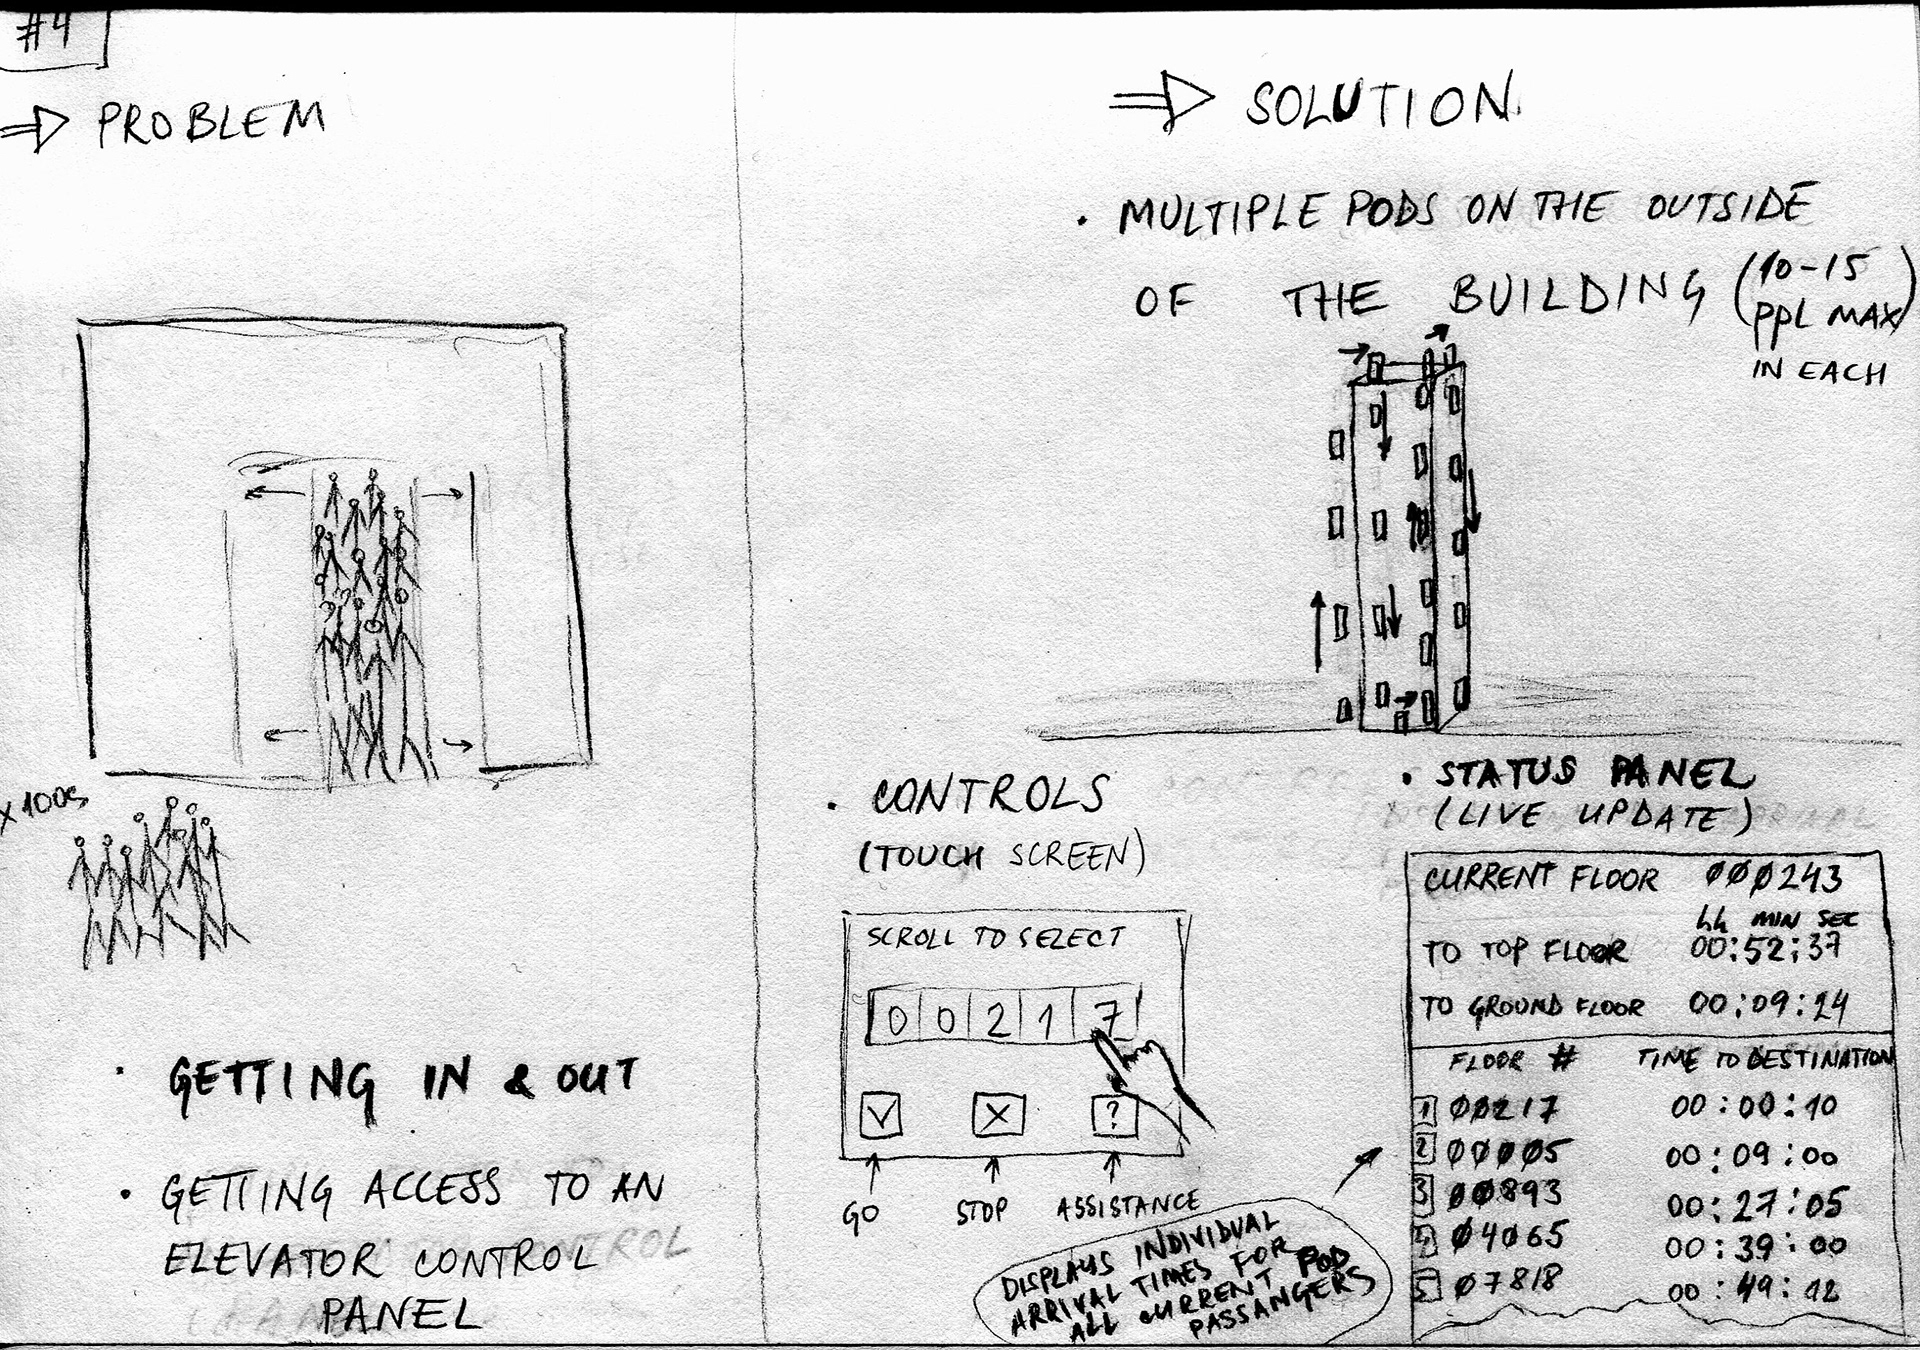 #4
⇒ PROBLEM
X 100s
• GETTING IN & OUT
• GETTING ACCESS TO AN
ELEVATOR CONTROL
PANEL
⇒ SOLUTION
• MULTIPLE PODS ON THE OUTSIDE
OF THE BUILDING (10-15
ppL MAX)
IN EACH
• CONTROLS
(TOUCH SCREEN)
SCROLL TO SELECT
0 0 2 1 7
?
GO STOP ASSISTANCE
DISPLAYS INDIVIDUAL
ARRIVAL TIMES FOR
ALL CURRENT POD
PASSANGERS
• STATUS PANEL
(LIVE UPDATE)
CURRENT FLOOR 000243
hh MIN SEC
TO TOP FLOOR 00:52:37
TO GROUND FLOOR 00:09:24
FLOOR # TIME TO DESTINATION
1 00217 00:00:10
2 00005 00:09:00
3 00893 00:27:05
4 04065 00:39:00
5 07818 00:49:12